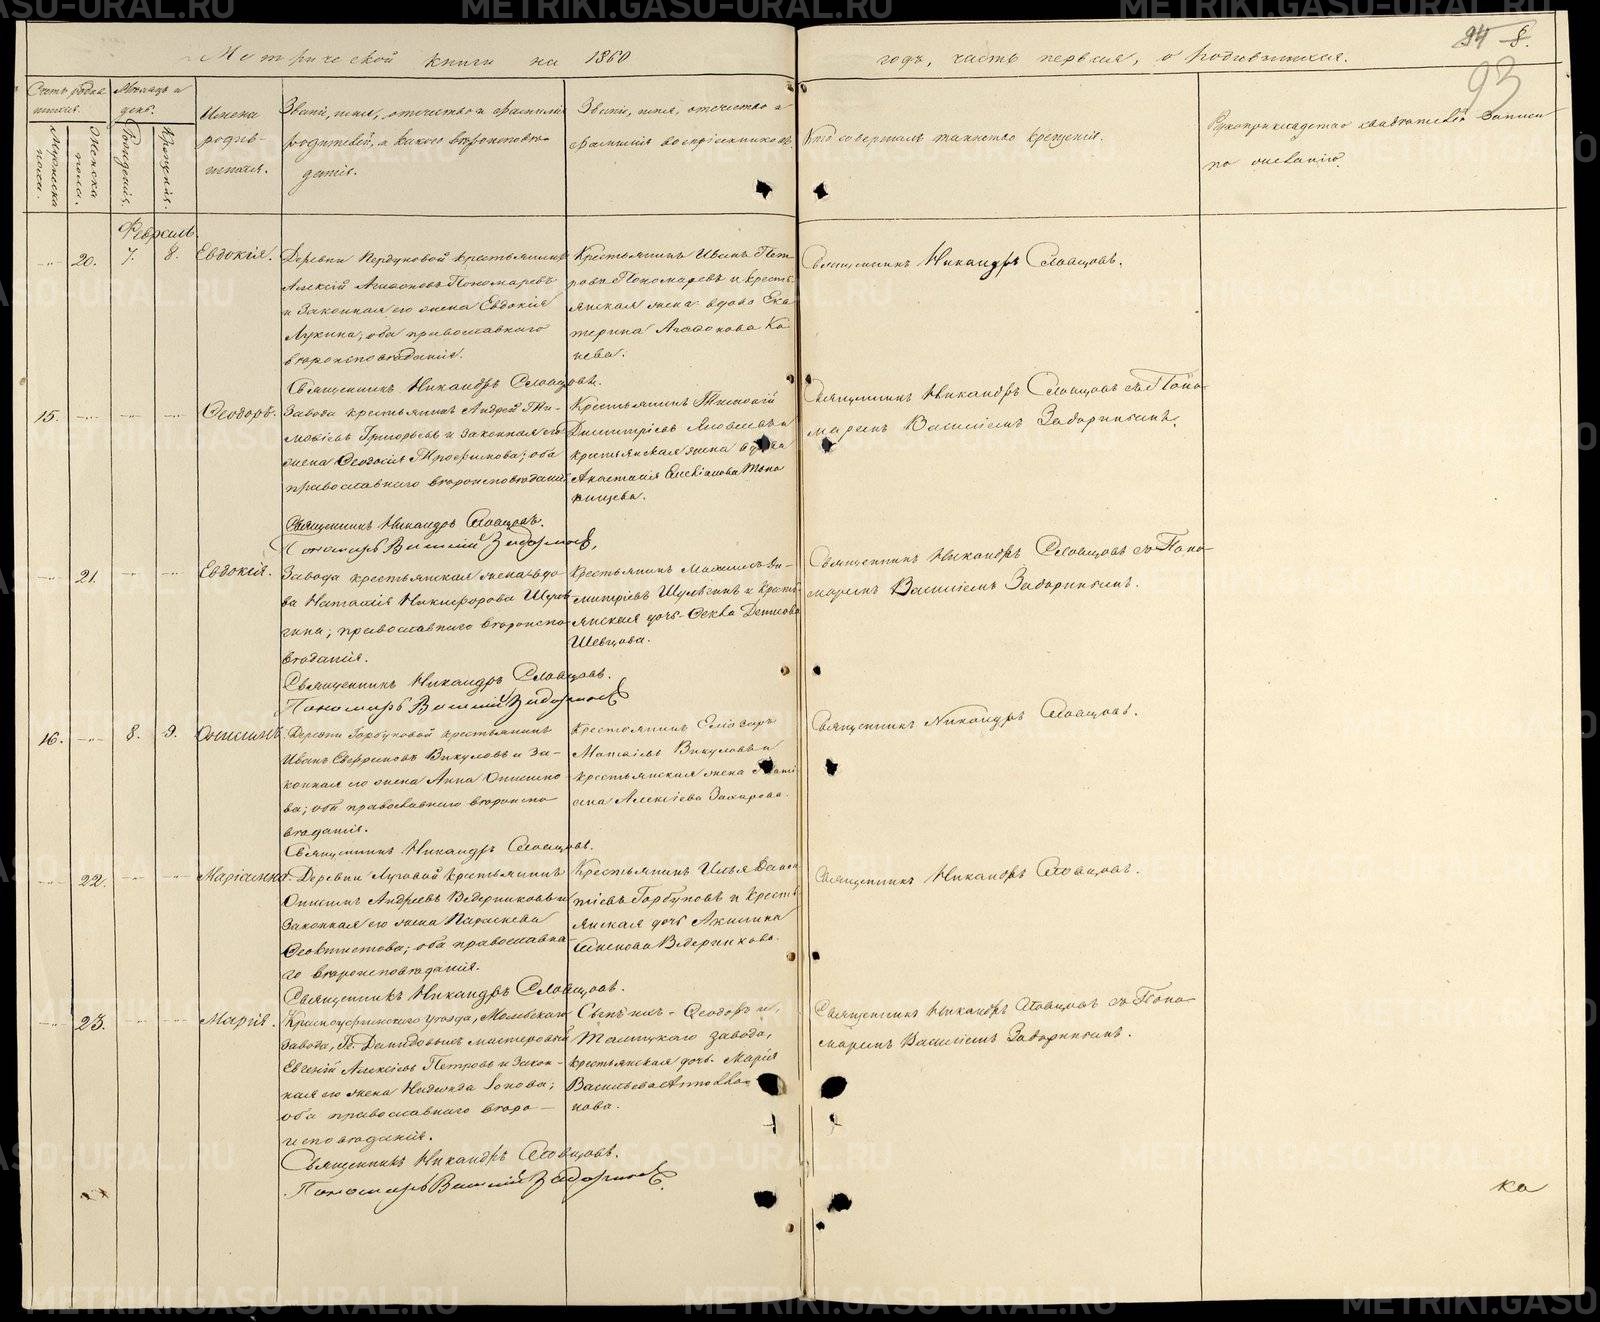 Метрической книги на 1860
годъ, часть первая, о родившихся.
94 8.
93
Счетъ родив
шихся.
Мѣсяцъ и
день.
Мужеска
пола.
Женска
пола.
Рожденія.
Крещенія.
Имена
родив-
шихся.
Званіе, имя, отчество и фамилія
родителей, и какого вѣроисповѣ
данія.
Званіе, имя, отчество и
фамилія воспріемниковъ
Кто совершалъ таинство крещенія.
Рукоприкладство свидѣтелей записи
по желанію.
Февраль.
20. 7. 8. Евдокія.
Деревни крестьянинъ
Алексій Агафоновъ Пономаревъ
и законная его жена Евдокія
Лукина; оба православнаго
вѣроисповѣданія.
Священникъ Никандръ Словцовъ.
Крестьянинъ Иванъ Пет
ровъ Пономаревъ и кресть
янская жена вдова Ека
терина Агафонова Ка
нева.
Священникъ Никандръ Словцовъ.
15. Ѳеодоръ.
Завода крестьянинъ Андрей Ти-
моѳіевъ Григорьевъ и законная его
жена Ѳеодосія Трофимова; оба
православнаго вѣроисповѣданія
Священникъ Никандръ Словцовъ.
Пономарь Василій Задоринъ
Крестьянинъ Тимоѳій
Димитріевъ Яковлевъ и
крестьянская жена вдова
Анастасія
Священникъ Никандръ Словцовъ съ Поно-
маремъ Василіемъ Задоринымъ.
21. Евдокія.
Завода крестьянская жена вдо-
ва Наталія Никифорова Шуля
гина; православнаго вѣроиспо-
вѣданія.
Священникъ Никандръ Словцовъ.
Пономарь Василій Задоринъ
Крестьянинъ Максимъ Ди-
митріевъ Шулягинъ и кресть
янская дочь Ѳекла Денисова
Шевцова.
Священникъ Никандръ Словцовъ съ Поно-
маремъ Василіемъ Задоринымъ.
16. 8. 9. Онисимъ.
Деревни Горбуновой крестьянинъ
Иванъ Евфимовъ Викуловъ и за-
конная его жена Анна Онисимо
ва; оба православнаго вѣроиспо
вѣданія.
Священникъ Никандръ Словцовъ.
Крестьянинъ Елеазаръ
Матвѣевъ Викуловъ и
крестьянская жена Тати
ана Алексіева Захарова.
Священникъ Никандръ Словцовъ.
22. Маріамна.
Деревни Луговой крестьянинъ
Онисимъ Андреевъ Ведерниковъ и
законная его жена Параскева
Ѳеоктистова; оба православна-
го вѣроисповѣданія.
Священникъ Никандръ Словцовъ.
Крестьянинъ Илья
Горбуновъ и кресть
янская дочь Акилина
Симонова Ведерникова.
Священникъ Никандръ Словцовъ.
23. Марія.
Красноуфимскаго уѣзда, Молебскаго
завода, Гг. Демидовыхъ мастеровый
Евгеній Алексіевъ Петровъ и закон-
ная его жена Надежда Іонова;
оба православнаго вѣро-
исповѣданія.
Священникъ Никандръ Словцовъ.
Пономарь Василій Задоринъ
Сынъ ихъ Ѳеодоръ и,
Талицкаго завода,
крестьянская дочь Марія
Васильева
нова.
Священникъ Никандръ Словцовъ съ Поно
маремъ Василіемъ Задоринымъ.
ка
METRIKI.GASO-URAL.RU